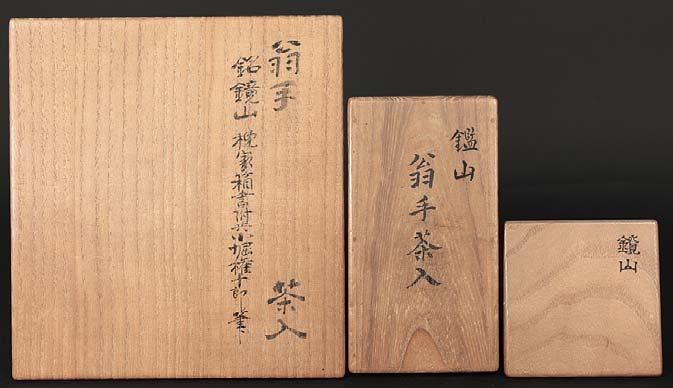 翁手　茶入
銘鏡山　挽家箱書附共小堀権十郎筆
鑑山
翁手茶入
鏡山